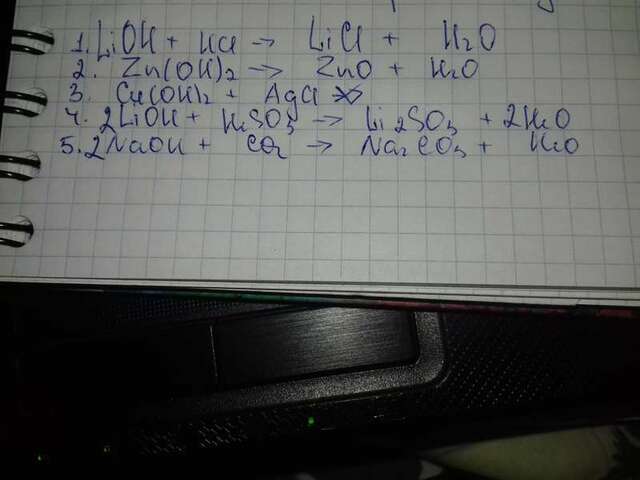 1. LiOH + HCl → LiCl + H2O
2. Zn(OH)2 → ZnO + H2O
3. Cu(OH)2 + AgCl ↛
4. 2LiOH + H2SO3 → Li2SO3 + 2H2O
5. 2NaOH + CO2 → Na2CO3 + H2O